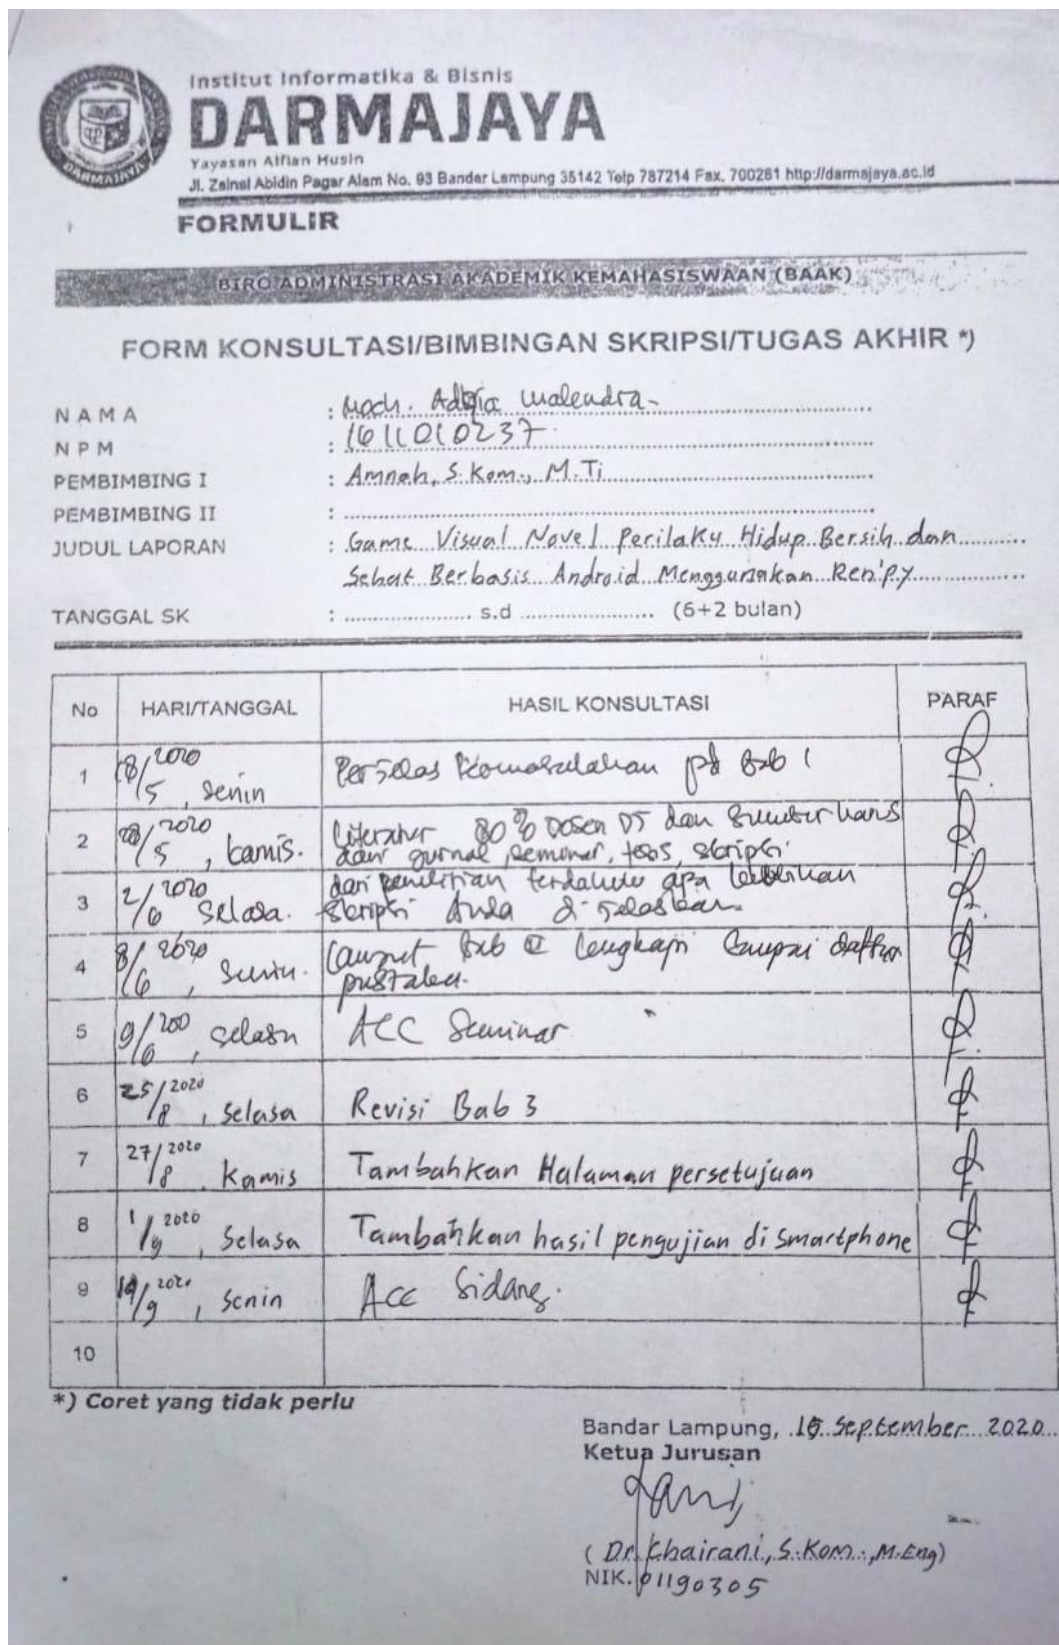 Institut Informatika & Bisnis
DARMAJAYA
Yayasan Alfian Husin
Jl. Zainal Abidin Pagar Alam No. 93 Bandar Lampung 35142 Telp 787214 Fax. 700261 http://darmajaya.ac.id
DARMAJAYA
FORMULIR
BIRO ADMINISTRASI AKADEMIK KEMAHASISWAAN (BAAK)
FORM KONSULTASI/BIMBINGAN SKRIPSI/TUGAS AKHIR *)
NAMA : Moch. Walendra
NPM : 1611010237
PEMBIMBING I : Amnah, S.Kom., M.Ti
PEMBIMBING II :
JUDUL LAPORAN : Game Visual Novel Perilaku Hidup Bersih dan
Sehat Berbasis Android Menggunakan Ren'Py
TANGGAL SK : .................... s.d .................... (6+2 bulan)
No HARI/TANGGAL HASIL KONSULTASI PARAF
1 18/5 2020, Senin Perjelas Permasalahan pd Bab 1
2 28/5 2020, kamis. Literatur 80% Dosen DJ dan Sumber harus
dari jurnal, seminar, tesis, skripsi
3 2/6 2020 Selasa. dari penelitian terdahulu apa kelebihan
skripsi Anda di jelaskan.
4 8/6 2020, Senin. Lanjut Bab II lengkapi sampai daftar
pustaka.
5 9/6 200, selasa ACC Seminar
6 25/8 2020, Selasa Revisi Bab 3
7 27/8 2020, Kamis Tambahkan Halaman persetujuan
8 1/9 2020, Selasa Tambahkan hasil pengujian di smartphone
9 14/9 2020, Senin Acc Sidang.
10
*) Coret yang tidak perlu
Bandar Lampung, 15 September 2020
Ketua Jurusan
(Dr. Khairani, S.Kom., M.Eng)
NIK. 01190305